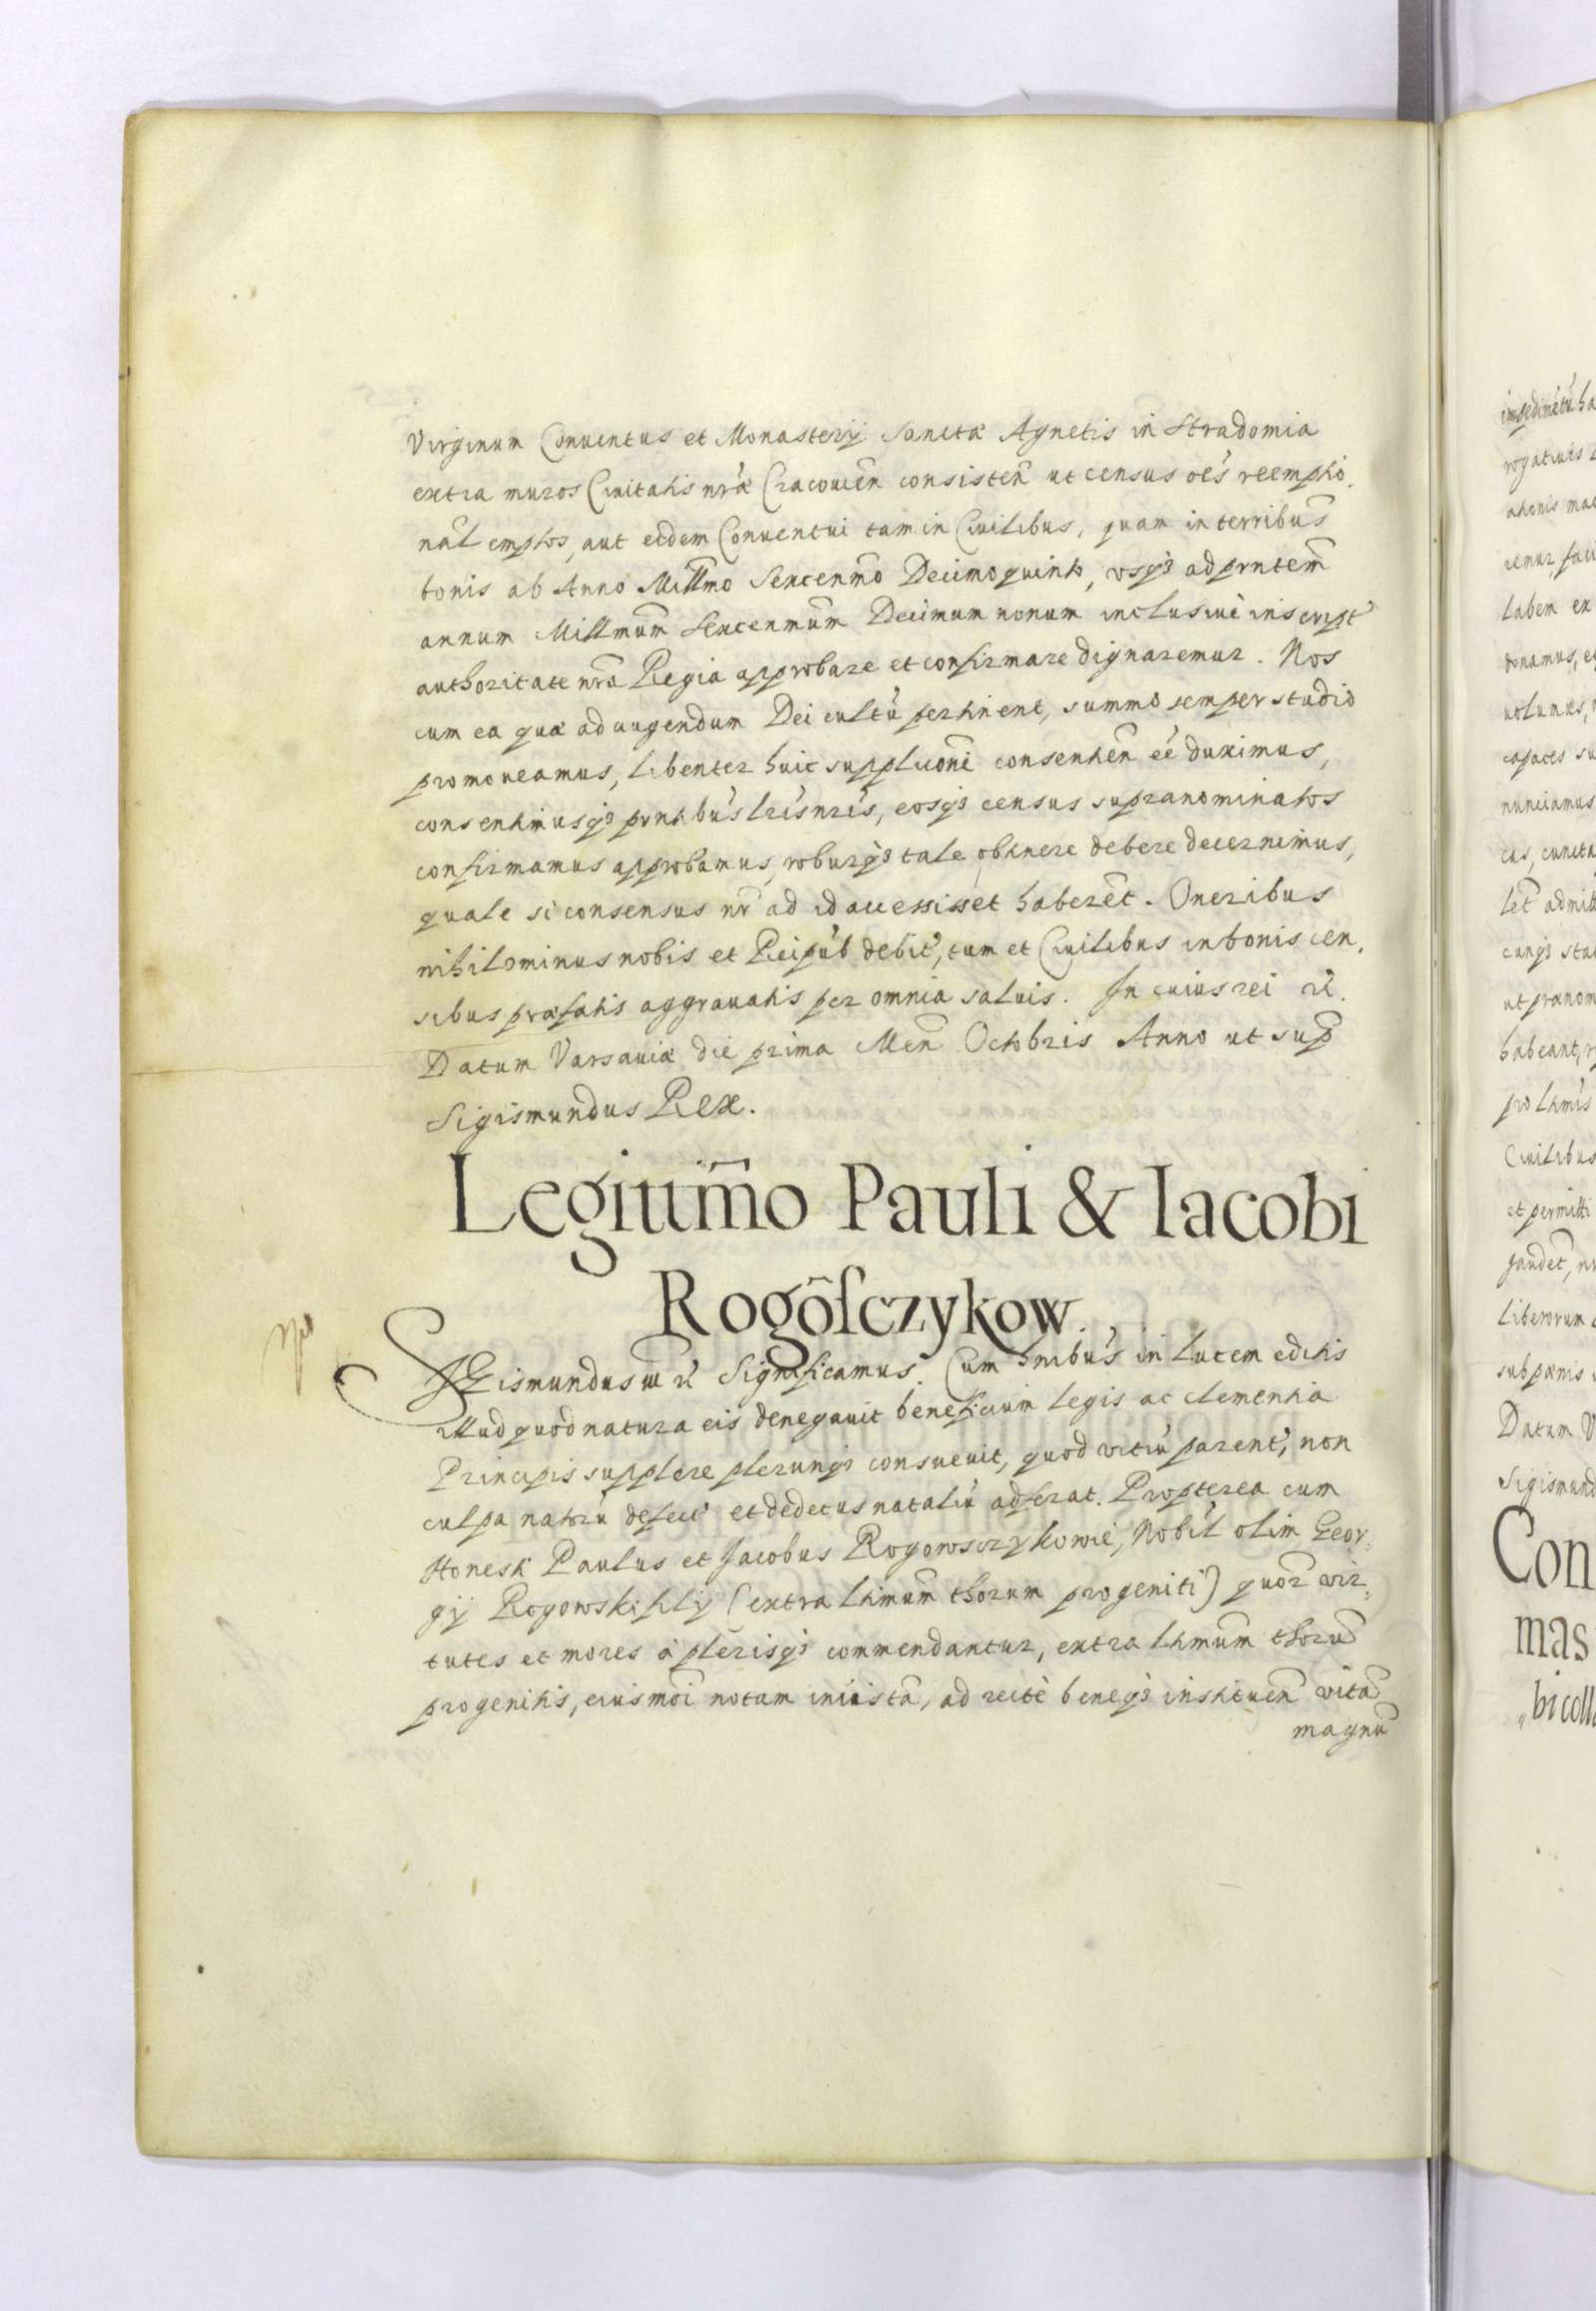 Virginum Conuentus et Monasterij Sanctæ Agnetis in Stradomia
extra muros Ciuitatis nr̃æ Cracouieñ consisteñ ut census oẽs reemptio
nal̃ emptos, aut eidem Conuentui tam in Ciuilibus, quam in terribus̃
bonis ab Anno Millm̃o Sexcenm̃o Decimoquinto, vsq3 ad prñtem
annum Millmũm Sexcenmũm Decimum nonum inclusiuè inscript̃
authoritate nrã Regia approbare et confirmare dignaremur. Nos
cum ea quæ ad augendum Dei cultũ pertinent, summo semper studio
promoueamus, libenter huic supplicoñi consentieñ eẽ duximus,
consentimusq3 prñtibus lr̃is nr̃is, eosq3 census supranominatos
confirmamus approbamus, roburq3 tale obtinere debere decernimus,
quale si consensus nr̃ ad id accessisset haberet̃. Oneribus
nihilominus nobis et Reipub̃ debit̃, tum et Ciuilibus in bonis cen
sibus præfatis aggrauatis per omnia saluis. In cuius rei rẽ.
Datum Varsauiæ die prima Meñ Octobris Anno ut sup̃
Sigismundus Rex.
Legitim̃o Pauli & Iacobi
Rogõſczykow
SGismundus III rẽ Significamus. Cum hnibus̃ in lucem editis
illud quod natura eis denegauit beneficium legis ac clementia
Principis supplere plerunq3 consueuit, quod vitiũ parent̃, non
culpa natorũ defect̃ et dedecus nataliũ adferat. Propterea cum
Honesti Paulus et Jacobus Rogowsczykowie, Nobil̃ olim Geor
gij Rogowski filij (extra ltimũm thorum progeniti) quor̃ vir
tutes et mores à plerisq3 commendantur, extra ltmũm thorũ
progenitis, eiusmõi notam iniustã, ad rectè beneq3 instituen̄ vitã
magnũ